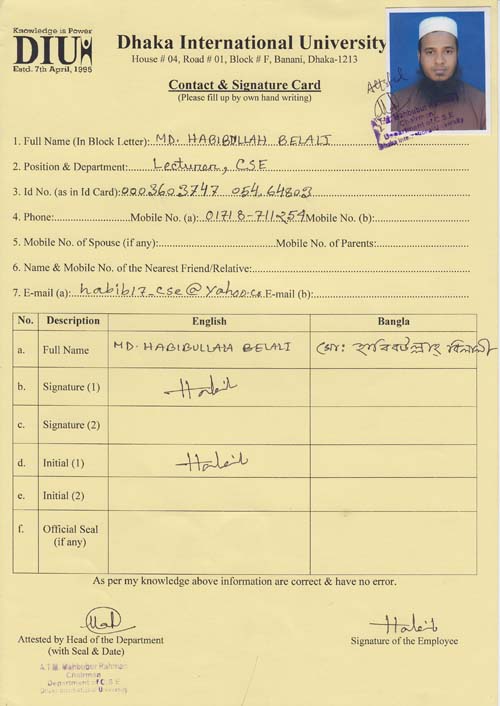 Knowledge is Power
DIU
Estd. 7th April, 1995
Dhaka International University
House # 04, Road # 01, Block # F, Banani, Dhaka-1213
Contact & Signature Card
(Please fill up by own hand writing)
Attested
A.T.M. Mahbubur Rahman
Chairman
Department of C.S.E
Dhaka International University
1. Full Name (In Block Letter): MD. HABIBULLAH BELALI
2. Position & Department: Lecturer, CSE
3. Id No. (as in Id Card): 0003603747 054,64803
4. Phone: Mobile No. (a): 01718-711254 Mobile No. (b):
5. Mobile No. of Spouse (if any): Mobile No. of Parents:
6. Name & Mobile No. of the Nearest Friend/Relative:
7. E-mail (a): habib17_cse@yahoo.co E-mail (b):
No. Description English Bangla
a. Full Name MD. HABIBULLAH BELALI মো: হাবিবউল্লাহ বিলালী
b. Signature (1) Habib
c. Signature (2)
d. Initial (1) Habib
e. Initial (2)
f. Official Seal
(if any)
As per my knowledge above information are correct & have no error.
Habib
Attested by Head of the Department Signature of the Employee
(with Seal & Date)
A.T.M. Mahbubur Rahman
Chairman
Department of C.S.E
Dhaka International University